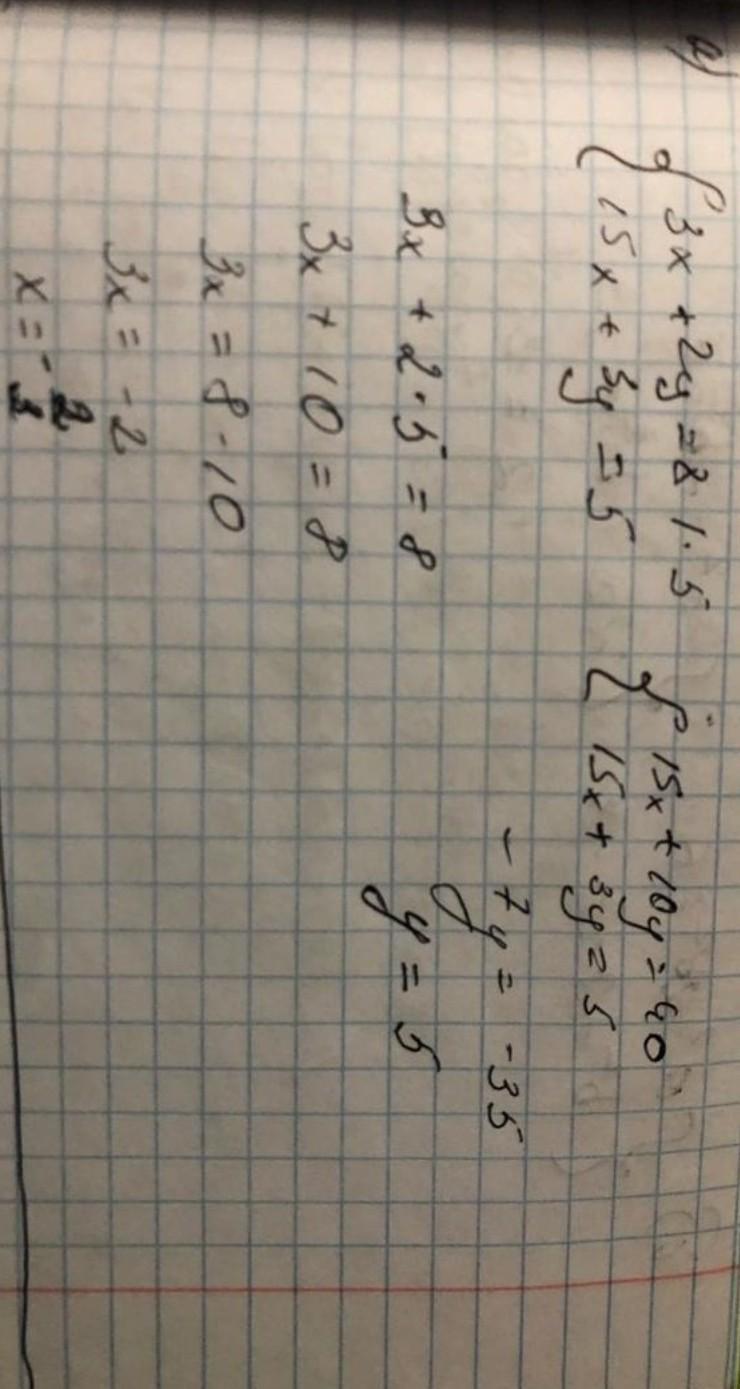 a)
{ 3x + 2y = 8 | · 5
{ 15x + 3y = 5
{ 15x + 10y = 40
{ 15x + 3y = 5
- 7y = -35
y = 5
3x + 2 · 5 = 8
3x + 10 = 8
3x = 8 - 10
3x = -2
x = - 2/3